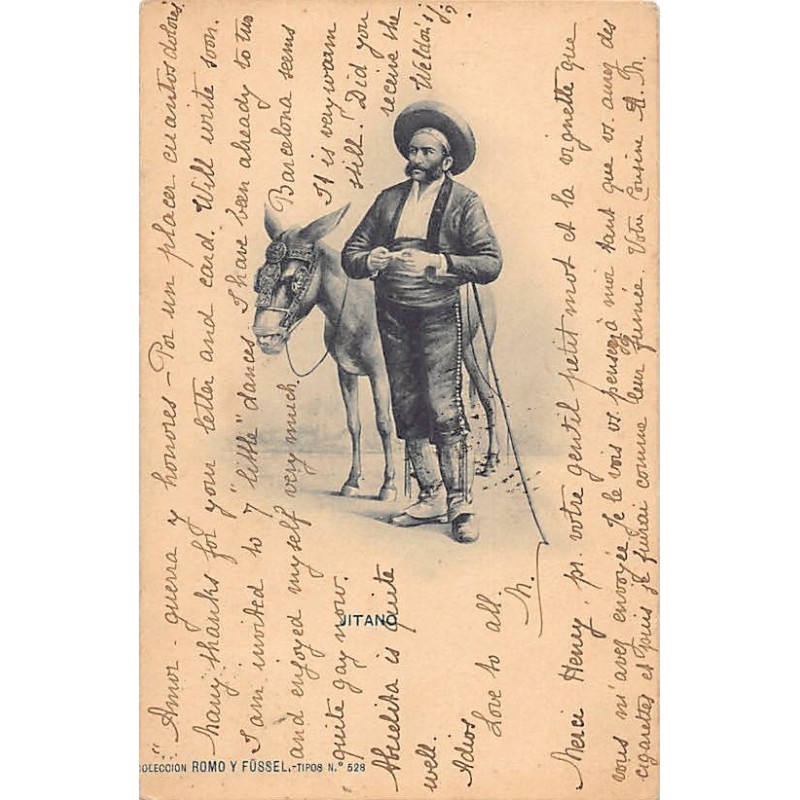 "Amor - guerra y honores - Por un placer cuantos dolores.
Many thanks for your letter and card. Will write soon.
I am invited to 7 "little" dances. I have been already to two
and enjoyed myself very much. Barcelona seems
quite gay now. It is very warm
Abuelita is quite still. Did you
well. receive the
Adios Weldon's?
Love to all.
N.
Merci Henry, pr. votre gentil petit mot et la vignette que
vous m'avez envoyée. Je le vois vs. pensez à moi tant que vs. aurez des
cigarettes et puis je fuirai comme leur fumée. Votre Cousine A. Th.
JITANO
COLECCION ROMO Y FÜSSEL.-TIPOS N.° 528